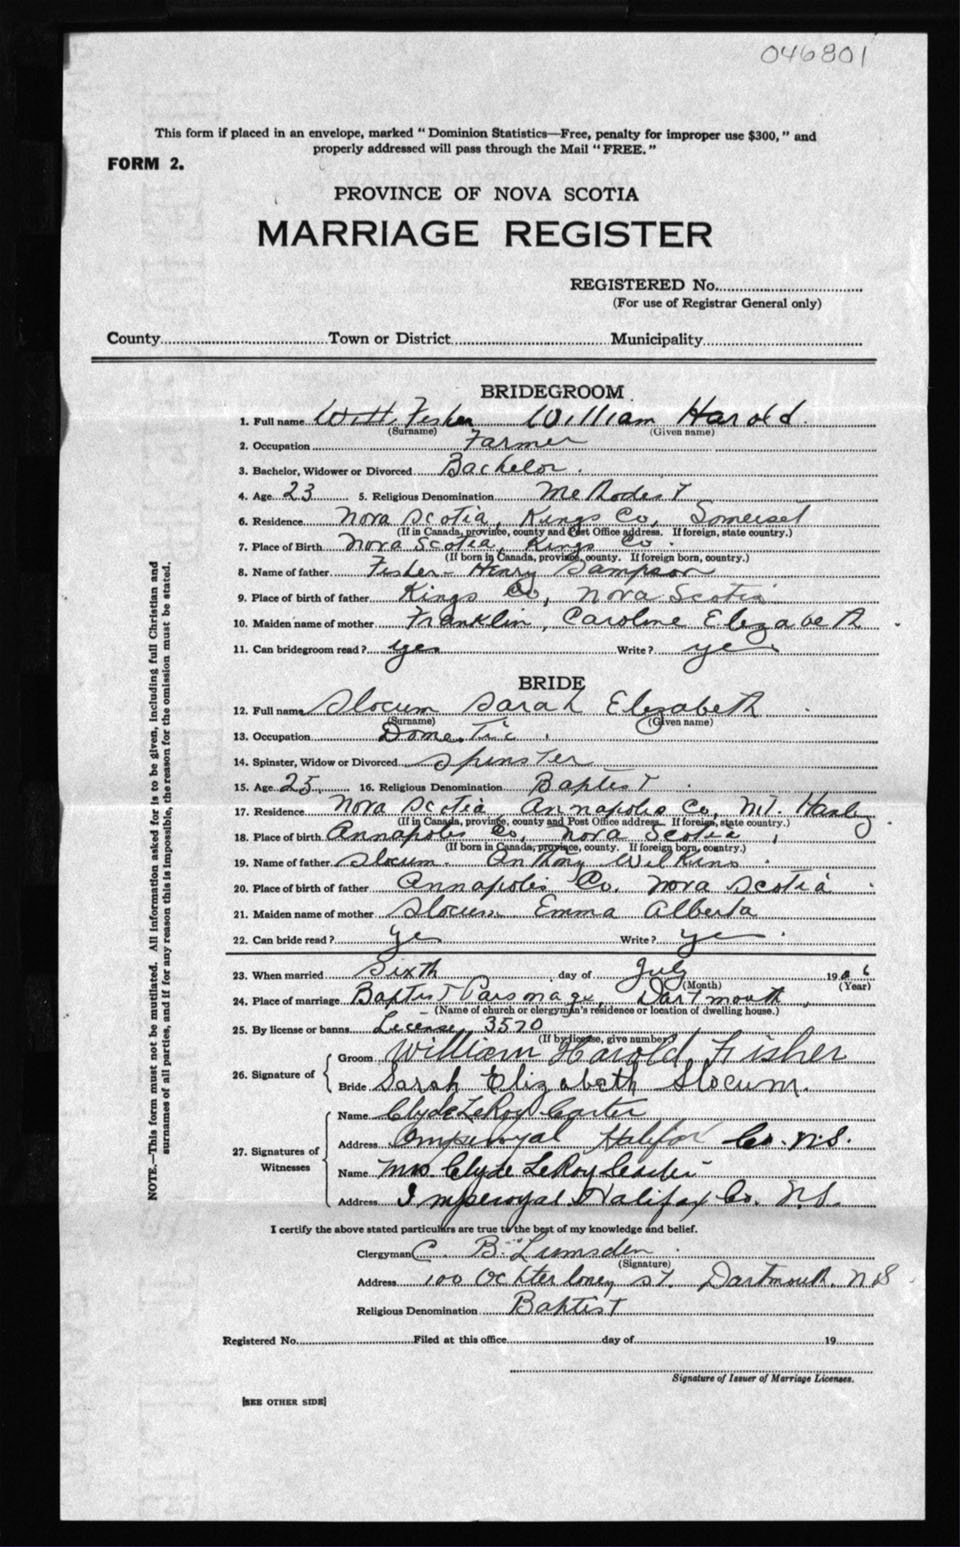 046801
This form if placed in an envelope, marked "Dominion Statistics—Free, penalty for improper use $300," and
properly addressed will pass through the Mail "FREE."
FORM 2.
PROVINCE OF NOVA SCOTIA
MARRIAGE REGISTER
REGISTERED No.
(For use of Registrar General only)
County Town or District Municipality
BRIDEGROOM
1. Full name Fisher William Harold.
(Surname) (Given name)
2. Occupation Farmer
3. Bachelor, Widower or Divorced Bachelor.
4. Age 23 5. Religious Denomination Methodist
6. Residence Nova Scotia, Kings Co, Somerset
(If in Canada, province, county and Post Office address. If foreign, state country.)
7. Place of Birth Nova Scotia, Kings Co.
(If born in Canada, province, county. If foreign born, country.)
8. Name of father Fisher - Henry Sampson
9. Place of birth of father Kings Co, Nova Scotia
10. Maiden name of mother Franklin, Caroline Elizabeth
11. Can bridegroom read? yes Write? yes
BRIDE
12. Full name Slocum Sarah Elizabeth
(Surname) (Given name)
13. Occupation Domestic.
14. Spinster, Widow or Divorced Spinster
15. Age 25 16. Religious Denomination Baptist
17. Residence Nova Scotia Annapolis Co, Mt. Hanley
(If in Canada, province, county and Post Office address. If foreign, state country.)
18. Place of birth Annapolis Co, Nova Scotia,
(If born in Canada, province, county. If foreign born, country.)
19. Name of father Slocum. Anthony Wilkins
20. Place of birth of father Annapolis Co. Nova Scotia
21. Maiden name of mother Slocum Emma Alberta
22. Can bride read? yes Write? yes
23. When married Sixth day of July 1926
(Month) (Year)
24. Place of marriage Baptist Parsonage, Dartmouth,
(Name of church or clergyman's residence or location of dwelling house.)
25. By license or banns License 3570
(If by license, give number)
26. Signature of
Groom William Harold Fisher
Bride Sarah Elizabeth Slocum.
27. Signatures of Witnesses
Name Clyde LeRoy Carter
Address Imperoyal Halifax Co. N.S.
Name Mrs Clyde LeRoy Carter
Address Imperoyal Halifax Co. N.S.
I certify the above stated particulars are true to the best of my knowledge and belief.
Clergyman C. B. Lumsden
(Signature)
Address 100 Ochterloney St. Dartmouth. N S
Religious Denomination Baptist
Registered No. Filed at this office day of 19
Signature of Issuer of Marriage Licenses.
[SEE OTHER SIDE]
NOTE.—This form must not be mutilated. All information asked for is to be given, including full Christian and
surnames of all parties, and if for any reason this is impossible, the reason for the omission must be stated.